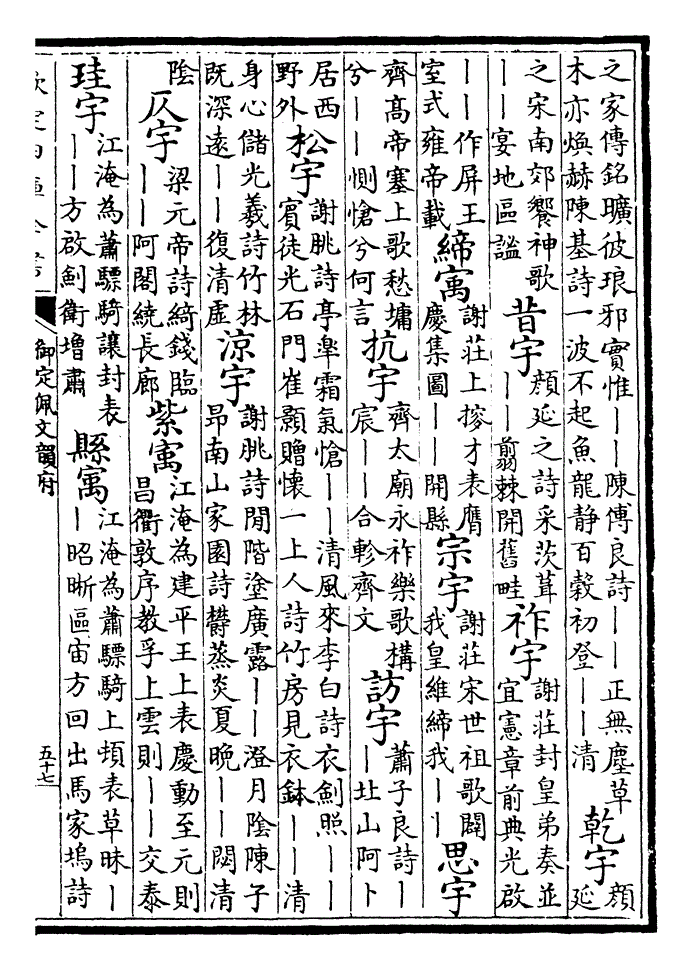 之家傳銘曠彼琅邪實惟——陳傅良詩——正無塵草
木亦煥赫陳基詩一波不起魚龍静百穀初登——清
乾宇
顔
延
之宋南郊饗神歌
——宴地區謐
昔宇
顔延之詩采茨葺
——翦棘開舊畦
祚宇
謝莊封皇弟奏並
宜憲章前典光啟
——作屏王
室式雍帝載
締㝢
謝莊上搜才表膺
慶集圖——開縣
宗宇
謝莊宋世祖歌闢
我皇維締我——
思宇
齊髙帝塞上歌愁墉
兮——惻愴兮何言
抗宇
齊太廟永祚樂歌構
宸——合軫齊文
訪宇
蕭子良詩—
—北山阿卜
居西
野外
松宇
謝朓詩亭臯霜氣愴——清風來李白詩衣劍照——
賓徒光石門崔顥贈懷一上人詩竹房見衣鉢——清
身心儲光羲詩竹林
既深遠——復清虚
涼宇
謝朓詩閒階塗廣露——澄月陰陳子
昻南山家園詩鬱蒸炎夏晚——閟清
陰
仄宇
梁元帝詩綺錢臨
——阿閣繞長廊
紫㝢
江淹為建平王上表慶動至元則
昌衢敦序教孚上雲則——交泰
珪宇
江淹為蕭驃騎讓封表
——方啟劍衛增肅
縣㝢
江淹為蕭驃騎上頓表草昧—
—昭晰區宙方回出馬家塢詩
欽定四庫全書
御定佩文韻府
五十七